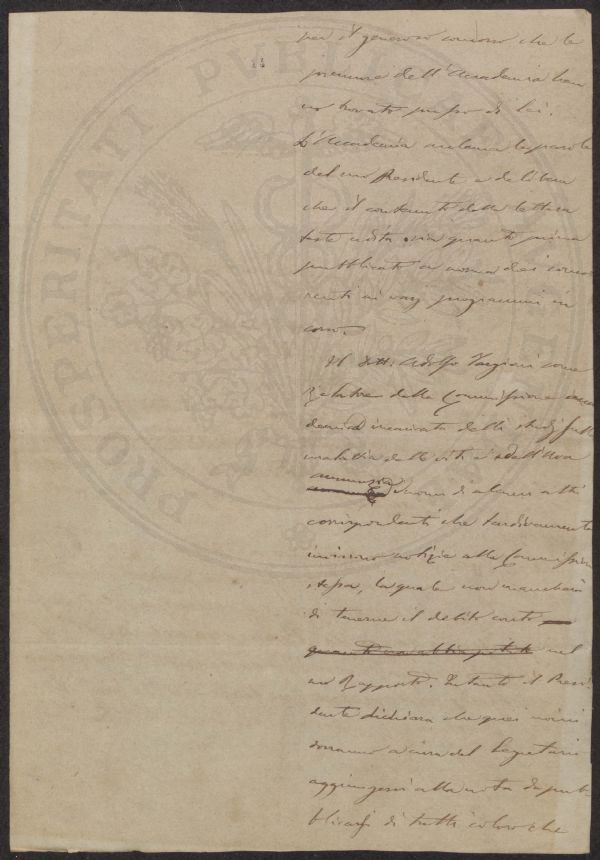 14
per il generoso concorso che le
premure dell'Accademia han
no trovato presso di lei.
L'Accademia acclama le parole
del suo Presidente e delibera
che il contenuto della lettera
teste udita sia quanto prima
pubblicato a norma dei concor
renti ai varj programmi in
corso.
Il Dott. Adolfo Targioni come
Relatore della Commissione acca
demica incaricata delli studj sulla
malattia delle viti e dell'Uva
annunzia
i nomi di alcuni altri
corrispondenti che tardivamente
inviarono notizie alla Commissione
stessa, la quale non mancherà
di tenerne il debito conto
nel
suo Rapporto. Intanto il Presi
dente dichiara che quei nomi
dovranno a cura del Segretario
aggiungersi alla nota da pub
blicarsi di tutti coloro che
PROSPERITATI PVBLICAE